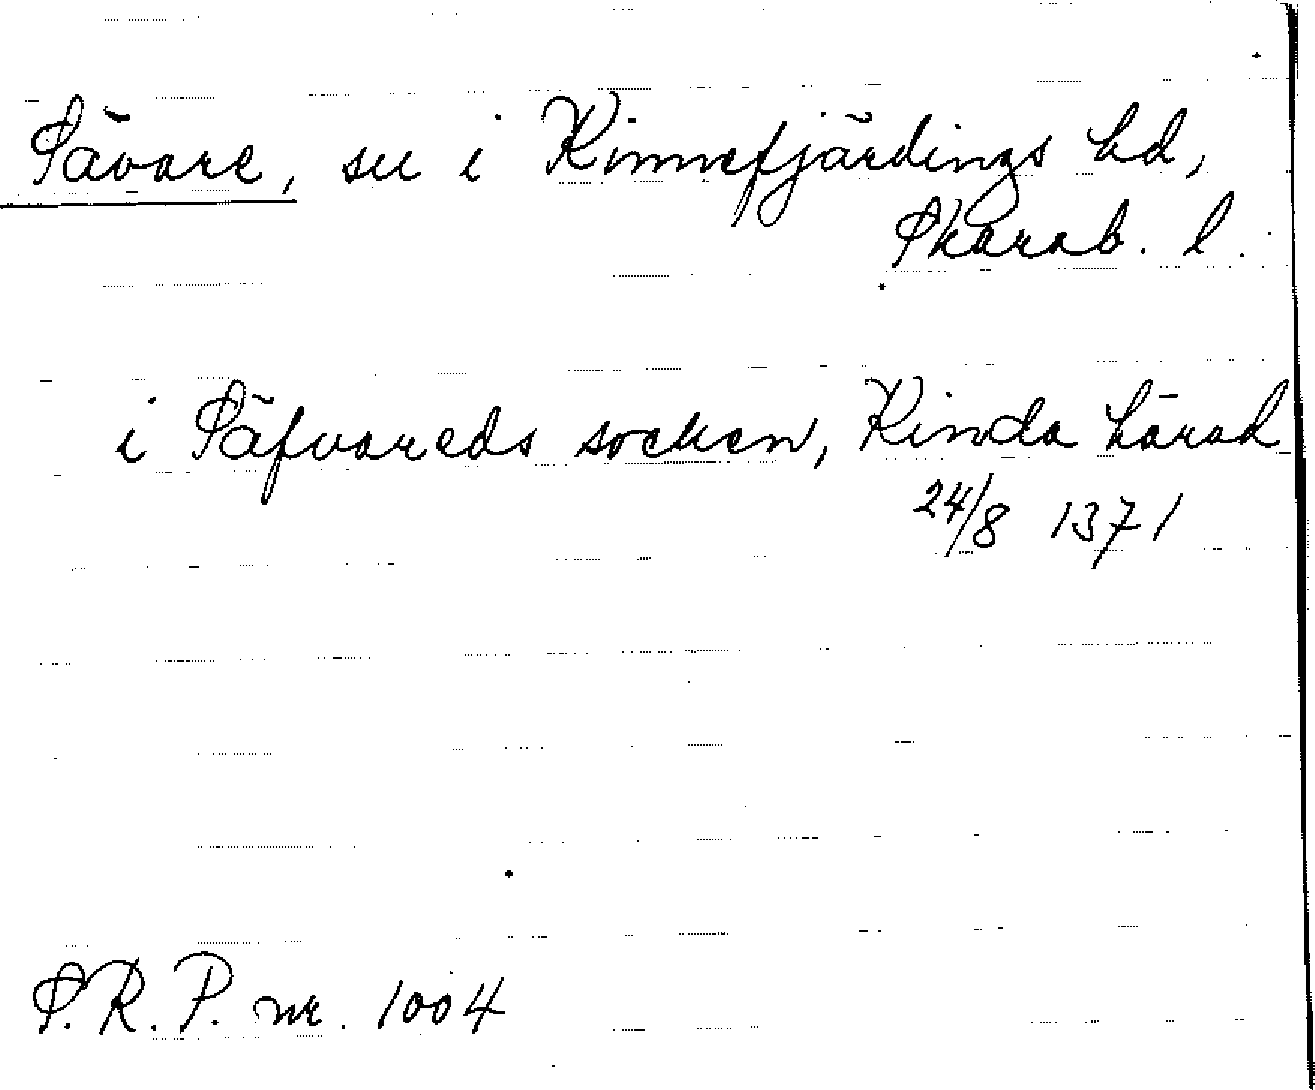 Sävare, sn i Kinnefjärdings hd,
Skarab. l.
i Säfvareds socken, Kinda härad
24/8 1371
S.R.P. nr. 1004